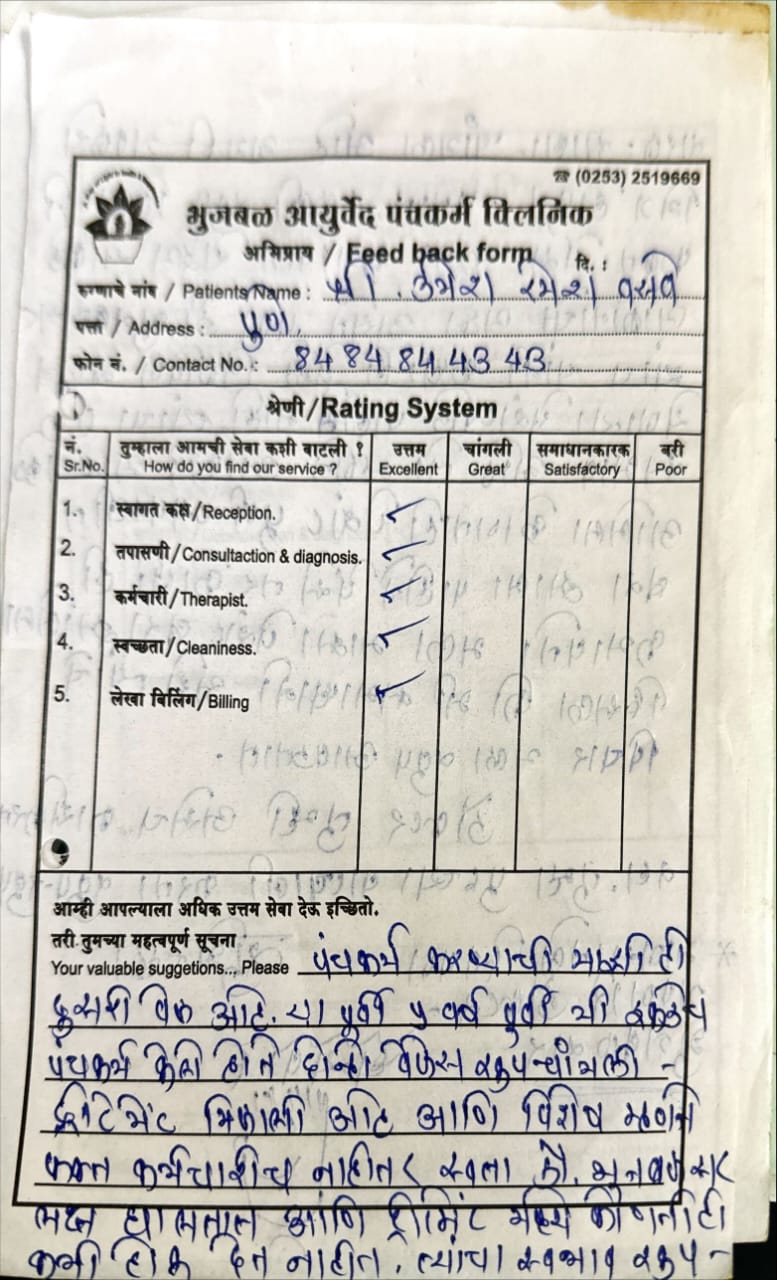 ☎ (0253) 2519669
भुजबळ आयुर्वेद पंचकर्म क्लिनिक
अभिप्राय / Feed back form दि. :
रुग्णाचे नांव / Patients Name : श्री. उमेश रमेश वसवे
पत्ता / Address : पुणे.
फोन नं. / Contact No. : 84 84 84 43 43
श्रेणी/Rating System
नं. तुम्हाला आमची सेवा कशी वाटली ? उत्तम चांगली समाधानकारक बरी
Sr.No. How do you find our service ? Excellent Great Satisfactory Poor
1. स्वागत कक्ष/Reception. ✓
2. तपासणी/Consultaction & diagnosis. ✓
3. कर्मचारी/Therapist. ✓
4. स्वच्छता/Cleaniness. ✓
5. लेखा बिलिंग/Billing ✓
आम्ही आपल्याला अधिक उत्तम सेवा देऊ इच्छितो.
तरी तुमच्या महत्वपूर्ण सूचना
Your valuable suggetions.., Please पंचकर्म करण्याची माझी ही
दुसरी वेळ आहे. या पूर्वी ५ वर्ष पूर्वी मी इकडेच
पंचकर्म केले होते दोन्ही वेळेस खुप चांगली
ट्रीटमेंट मिळाली आहे आणि विशेष म्हणजे
फक्त कर्मचारीच नाहीतर स्वतः डॉ. भुजबळ सर
लक्ष घालतात आणि ट्रीटमेंट मध्ये कोणतीही
कमी होऊ देत नाहीत. त्यांचा स्वभाव खुप